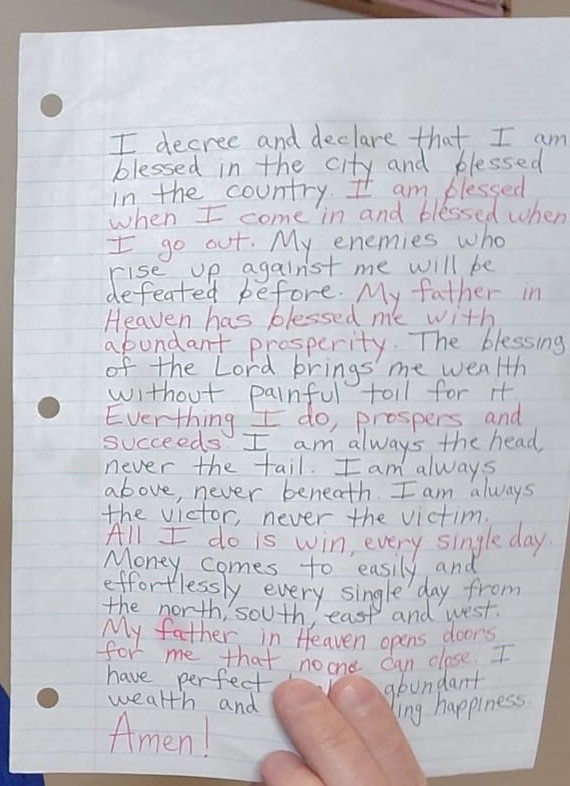 I decree and declare that I am
blessed in the city and blessed
in the country. I am blessed
when I come in and blessed when
I go out. My enemies who
rise up against me will be
defeated before. My father in
Heaven has blessed me with
abundant prosperity. The blessing
of the Lord brings me wealth
without painful toil for it.
Everthing I do, prospers and
succeeds. I am always the head,
never the tail. I am always
above, never beneath. I am always
the victor, never the victim.
All I do is win, every single day.
Money comes to easily and
effortlessly every single day from
the north, south, east and west.
My father in Heaven opens doors
for me that no one can close. I
have perfect abundant
wealth and happiness.
Amen!